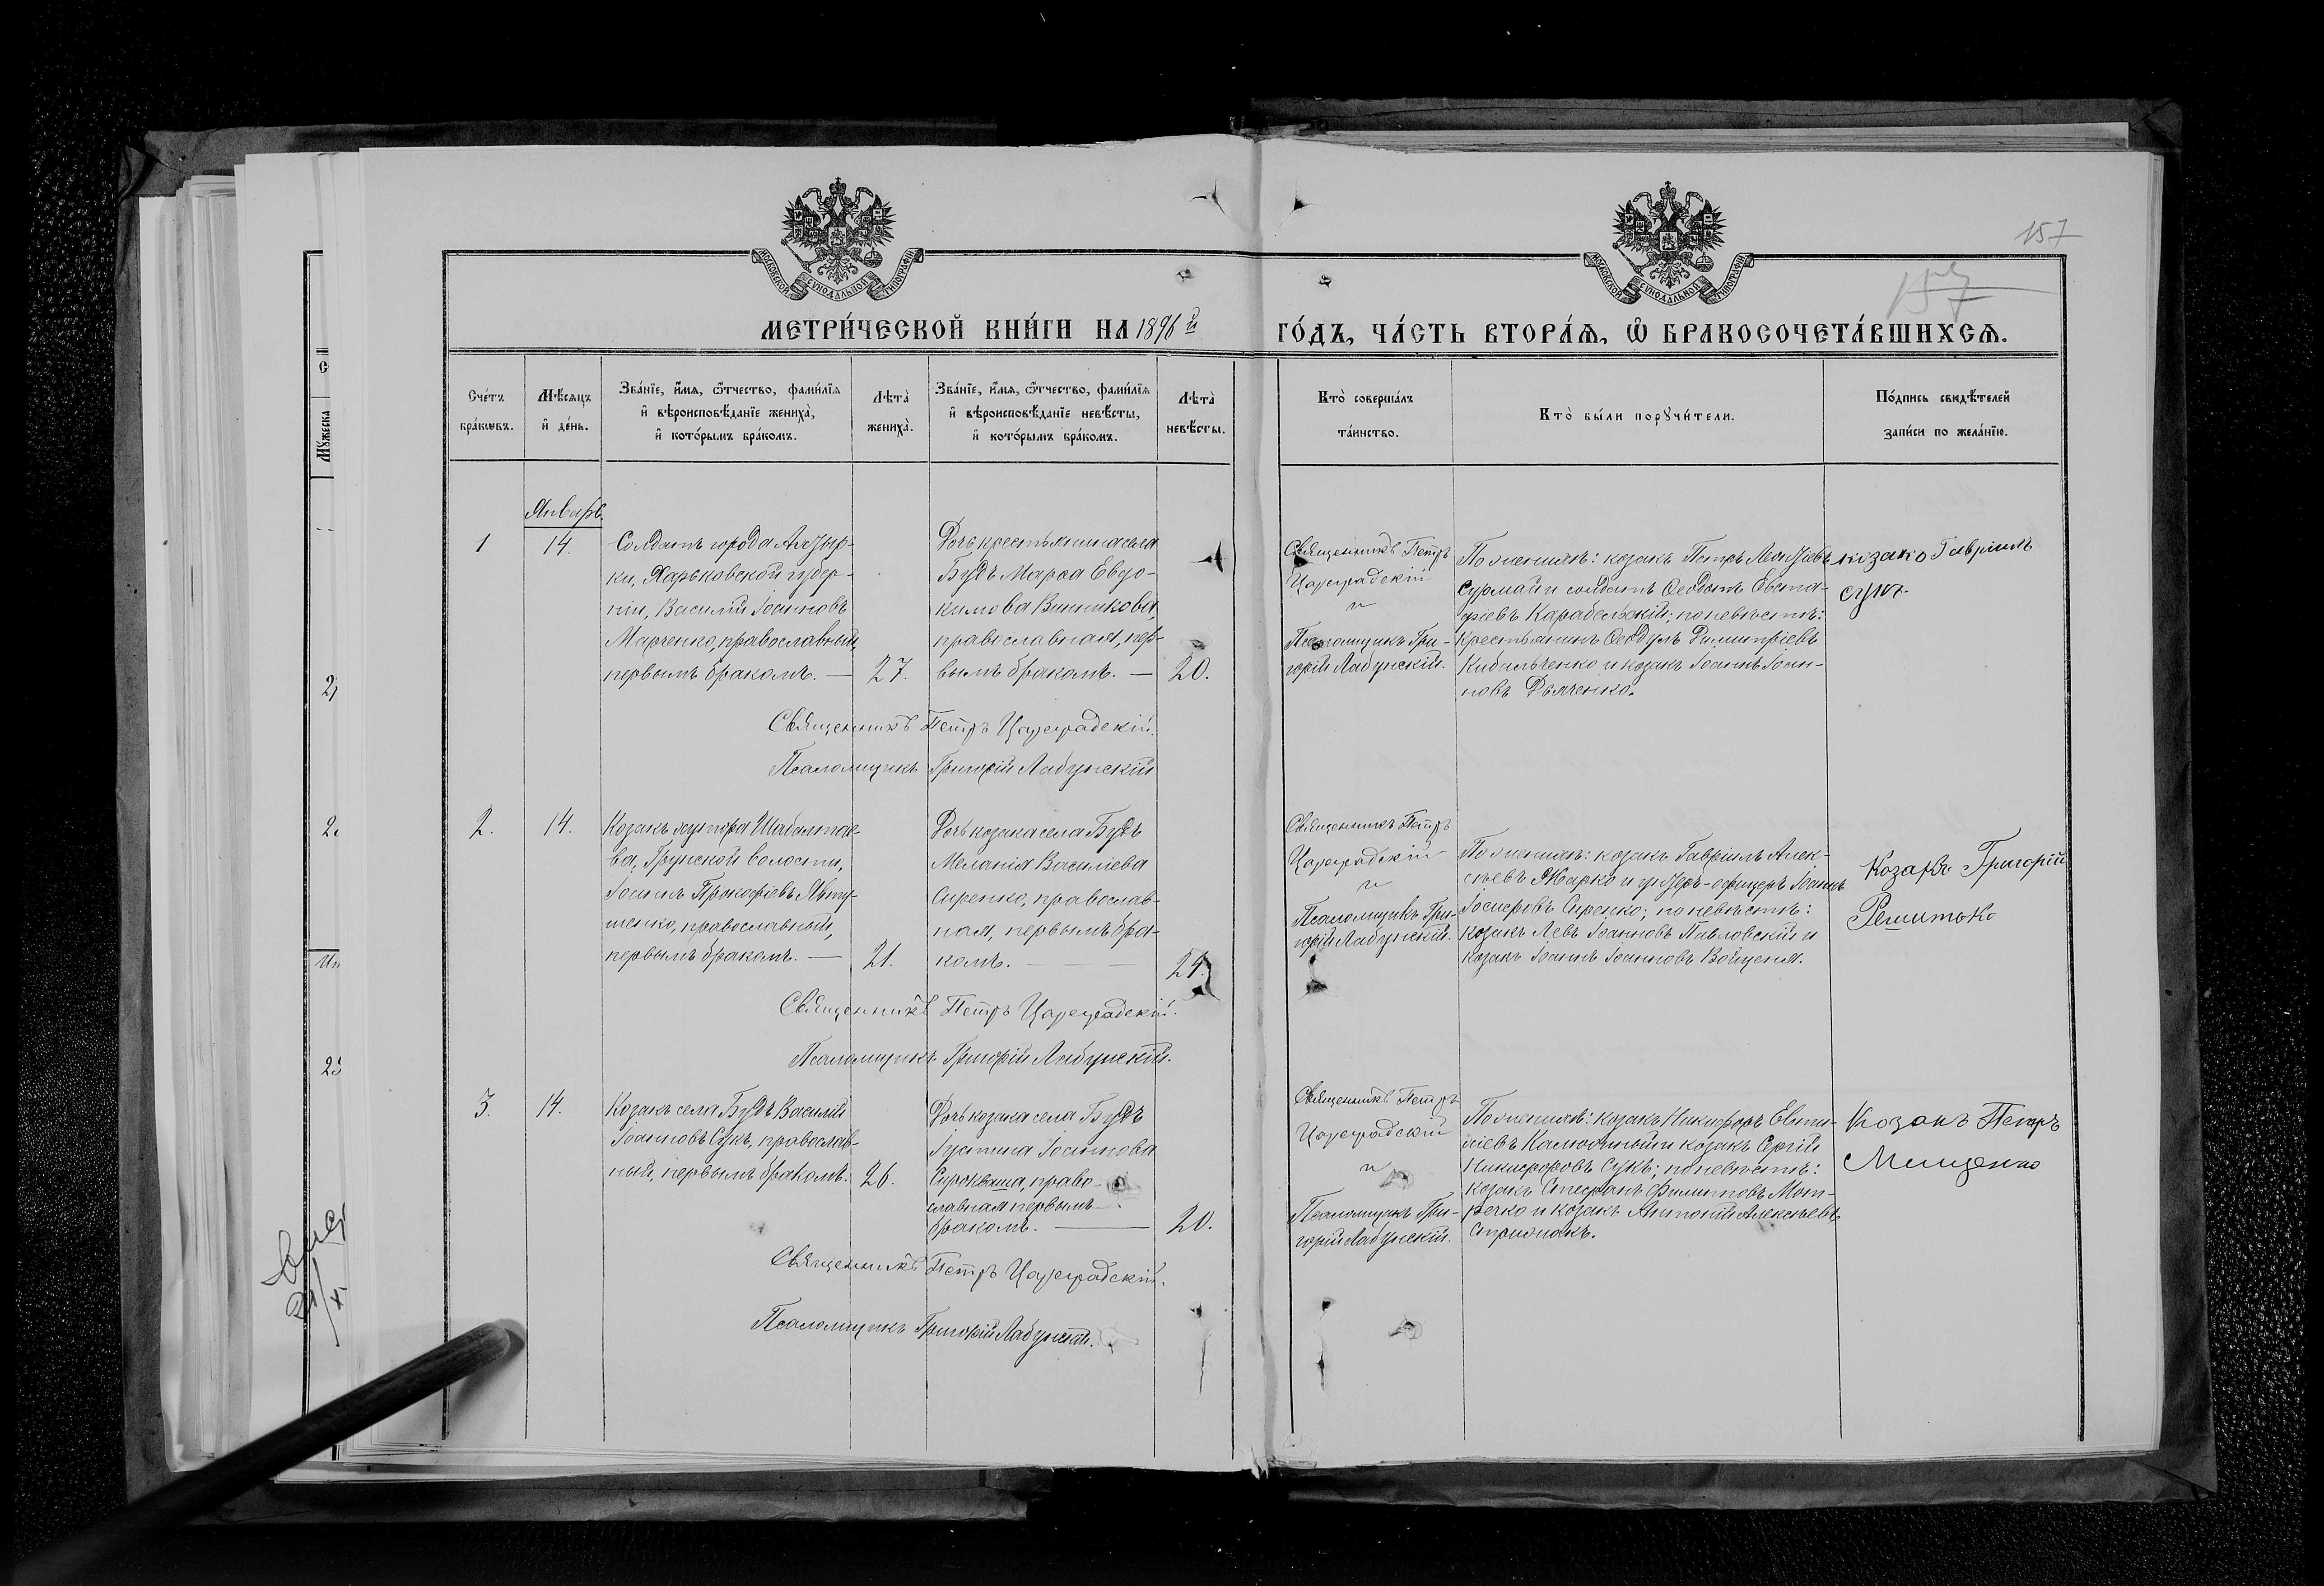 157
157
МОСКОВСКОЙ СѴНОДАЛЬНОЙ ТИПОГРАФІИ
МОСКОВСКОЙ СѴНОДАЛЬНОЙ ТИПОГРАФІИ
МЕТРИ́ЧЕСКОЙ КНИ́ГИ НА 1896 й ГО́ДЪ, ЧА́СТЬ ВТОРА́Ѧ, Ѡ҆ БРАКОСОЧЕТА́ВШИХСѦ.
Сче́тъ
бра́кѡвъ.
Мѣ́сѧцъ
и҆ де́нь.
Зва́нїе, и҆́мѧ, ѻ҆́тчество, фами́лїѧ
и҆ вѣроисповѣ́данїе жениха̀,
и҆ кото́рымъ бра́комъ.
Лѣта̀
жениха̀.
Зва́нїе, и҆́мѧ, ѻ҆́тчество, фами́лїѧ
и҆ вѣроисповѣ́данїе невѣ́сты,
и҆ кото́рымъ бра́комъ.
Лѣта̀
невѣ́сты.
Кто̀ соверша́лъ
та́инство.
Кто̀ бы́ли порꙋчи́тели.
По́дпись свидѣ́телей
за́писи по жела́нїю.
Январь.
1
14.
Солдатъ города
ки, Харьковской губер-
ніи, Василій Іоанновъ
Марченко, православный,
первымъ бракомъ. —
27.
Дочь крестьянина села
Будъ Марѳа Евдо-
кимова Винникова,
православная, пер-
вымъ бракомъ. —
20.
Священникъ Петръ
Цареградскій
и
Псаломщикъ Гри-
горій Лабунскій.
По женихѣ: козакъ Петръ
Сурмай и солдатъ Ѳеодотъ Евста-
фіевъ Карабельскій; по невѣстѣ:
Крестьянинъ Ѳеодулъ Димитріевъ
Кибальченко и козакъ Іоаннъ Іоан-
новъ Дьяченко.
козако Гавріилъ
сукъ.
Священникъ Петръ Цареградскій.
Псаломщикъ Григорій Лабунскій
2.
14.
Козакъ хутора Шабалтае-
ва, Грунской волости,
Іоаннъ Прокофіевъ Явту-
шенко, православный,
первымъ бракомъ. —
21.
Дочь козака села Будъ
Меланія Василіева
Сиренко, православ-
ная, первымъ бра-
комъ. —
Священникъ Петръ
Цареградскій
и
Псаломщикъ Гри-
горій Лабунскій.
По женихѣ: козакъ Гавріилъ Алек-
сѣевъ Жарко и унтеръ-офицеръ Іоаннъ
Іосифовъ Сиренко; по невѣстѣ:
козакъ Левъ Іоанновъ Павловскій и
козакъ Іоаннъ Іоанновъ
Козакъ Григорій
Решитько
Священникъ Петръ Цареградскій.
Псаломщикъ Григорій Лабунскій.
3.
14.
Козакъ села Будъ Василій
Іоанновъ Сукъ, православ-
ный, первымъ бракомъ.
26.
Дочь козака села Будъ
Іустина Іоаннова
Сироваша, право-
славная первымъ
бракомъ. —
20.
Священникъ Петръ
Цареградскій
и
Псаломщикъ Гри-
горій Лабунскій.
По женихѣ: козакъ Никифоръ Евти-
хіевъ и козакъ Сергій
Никифоровъ Сукъ; по невѣстѣ:
козакъ Стефанъ Филиповъ
и козакъ Антоній Алексѣевъ
Козакъ Петръ
Мищенко
Священникъ Петръ Цареградскій.
Псаломщикъ Григорій Лабунскій.